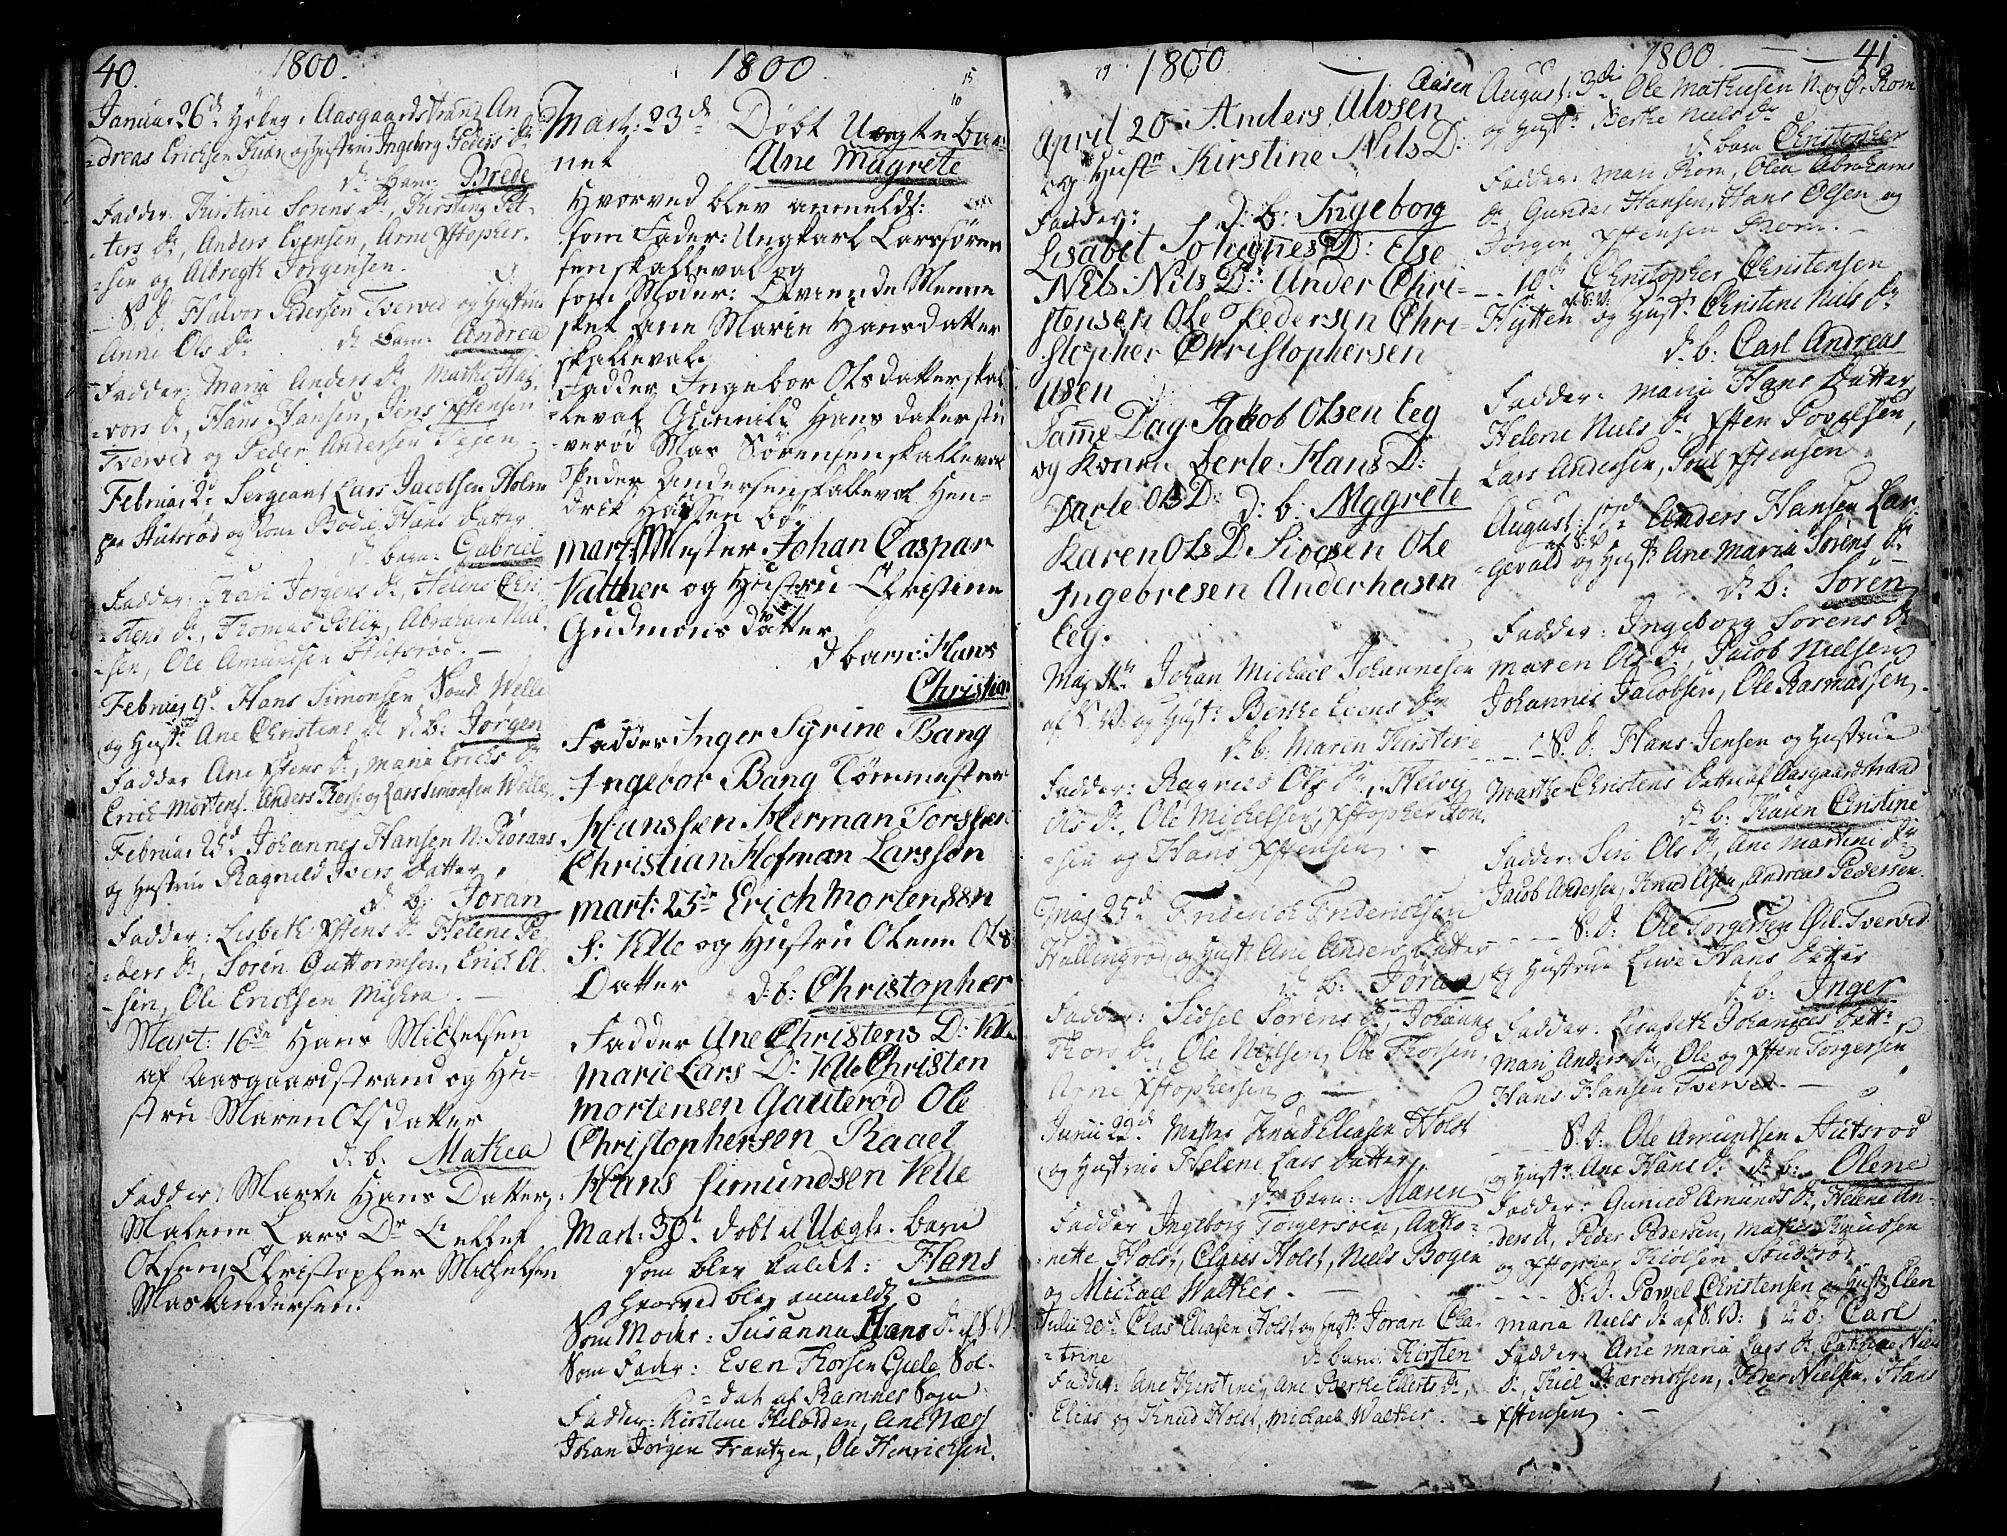 40.
1800.
Januar 26de Høker i Aasgaardstrand An-
dreas Erichsen og Hustrue Ingeborg Peders Dr
Dr. barn: Brede
Fadder: Kirstine Sørens Dr, Kirstine Pet-
ters Dr, Anders Evensen, Arne Xstopher-
sen og Albregth Jørgensen.
S. D. Halvor Pedersen Tvervid og Hustrue
Anne Ols Dr
Dr. Barn: Andrea
Fadder: Maria Anders Dr, Marthe Hal-
vors Dr, Hans Hansen, Jens Xstensen
Tvervid og Peder Andersen
Februar 2d Sergeant Lars Jacobsen Holm
paa Hutsrød og Kone Bodil Hans Datter
Dr. barn: Gabriel
Fadder: Kari Jørgens Dr, Helene Chri-
stens Dr, Thomas Abraham Niel-
sen, Ole Amundsen Hutsrød.
Februar 9d Hans Simonsen Sønd. Welle
og Hustr. Ane Christens Dr d. b. Jørgen
Fadder Ane Xstens Dr, Maria Erichs Dr
Erich Mortens. Anders Thors: og Lars Simonsen Welle
Februar 25d Johannes Hansen N:
og Hustrue Ragnild Ivers Datter
d. b. Joran
Fadder: Lisbeth Xstens Dr Helene Pe-
ders Dr, Søren Guttormsen, Erich Ol-
sen, Ole Erichsen
Mart: 16de Hans Michelsen
af Aasgaardstrand og Hu-
stru Maren Olsdatter
d: b: Mathea
Fadder: Marte Hans Datter
Malene Lars Dr
Olsen, Christopher Michelsen
Mas Andersen.
1800
15
10
Mart: 23de Døbt Uægte bar-
net
Ane Magrete
Hvorved blev anmeldt:
som Fader: Ungkarl Lars Søren
sen skalleval og
som Moder: Menne
sket Ane Marie Hansdatter
skallevali
Fadder Ingebor Olsdatter skal
leval Gunnild Hans datter
verød Mas Sørensen skalleval
Peder Andersen skalleval Hen-
drik Hansen bø,
mart: Mester Johan Caspar
Valther og Hustru Christine
Gudmons datter
d barn: Hans
Christian
Fadder Inger Syrine Bang
Ingebor Bang Tømmester
Hanssen Herman Torssen
Christian Hofman Larssen
mart: 25de Erich Mortenssen
S. Velle og Hustru Olene Ols
Datter
d: b: Christopher
Fadder Ane Christens D: Velle
marie Lars D: Velle Christen
mortensen Gauterød Ole
Christophersen Raael
Hans Simundsen Velle
Mart: 30t døbt et Uægte barn
som blev kaldet: Hans
hvorved blev anmeldt
Som Moder: Susanna Hans D. af S. V.
Som Fader: Even Thorsen Gjele Sol-
dat af Ramnes Sogn
Fadder: Kirstine Ane Næss
Johan Jørgen Frantzen, Ole Henrichsen.
1800
Aasen
April 20 Anders Alvsen
og Hustr Kirstine Nils D:
Fadder:
d: b: Ingeborg
Lisabet Johannes D: Else
Nils Nils D: Ander Chri-
stensen Ole Pedersen Chri-
stopher Christophersen
Usen
Samme Dag Jakob Olsen Eeg
og Konen berte Hans D:
Darle Ols D: d: b: Mggrete
Karen Ols D Sivesen Ole
Ingebresen Anderhasen
Eeg.
Maj 11te Johan Michael Johannesen
af S. V. og Hustr: Berthe Evens Dr
Dr. b. Maren Kirstine
Fadder: Ragnild Ols Dr, Helvig
Ols Dr, Ole Michelsen, Xstopher Jon-
sen og Hans Xstensen
Maj 25d Friderich Friderichsen
Hallingrød og Hust: Ane Anders Datter
d. b. Jøran
Fadder: Sidsel Sørens Dr, Johanne
Thors Dr, Ole Nielsen, Ole Thorsen,
Arne Xstophersen
Junii 22d Knud Eliasen Holst
og Hustrue Helene Lars Datter,
Dr. barn: Maren
Fadder Ingeborg Torgersøen, Antho-
nette Holst, Claus Holst, Niels Bogen
og Michael Walther.
Julii 20d Elias Eliasen Holst og Hust: Joran Cha-
trine
d. barn: Kirsten
Fadder: Ane Kirstine, Ane Berthe Ellerts Dr,
Elias og Knud Holst, Michael Walther.
1800
41
August: 3de Ole Mathisen N: og Ø. Rom
og Hustr Berthe Niels Dr
d. barn Christopher
Fadder: Mari Rom, Olea Abrahams
Dr, Gunder Hansen, Hans Olsen og
Jørgen Xstensen Rom.
10de Christopher Christensen
Hytten af S: V: og Hust: Christine Niels Dr
d. b: Carl Andreas
Fadder: Maria Hans Datter
Helene Niels Dr Xsten Povelsen,
Lars Andersen, Poul Xstensen
August: 17de Anders Hansen Lar-
gevald af S: V: og Hust: Ane Maria Sørens Dr
d. b: Søren
Fadder: Ingeborg Sørens Dr
Maren Ols Dr, Jacob Nielsen
Johannes Jacobsen, Ole Rasmussen.
S. D. Hans Jensen og Hustrue
Marthe Christens Datter af Aasgaardstrand
d. b: Karen Christine
Fadder: Siri Ols Dr, Ane Martine Dr
Jacob Andersen, Knud Olsen, Andreas Pedersen.
S. D. Ole Torgersen Øst. Tvervid
og Hustrue Live Hans Datter
d. b: Inger
Fadder: Lisabeth Johannes Datt:
Mari Anders Dr, Ole og Xsten Torgersen
Hans Hansen Tvervid.
S. D. Ole Amundsen Hutsrød
og Hustr: Ane Hans Dr d: b: Olene
Fadder: Gunild Amunds Dr, Helene An-
ders D, Peder Pedersen, Mathis Knudsen
og Xstopher Kiølsen
S. D. Powel Christensen og Hustr Elen
Maria Niels Dr af S. V: d b: Carl
Fadder: Ane Maria Lars Dr, Cathrine Niels
Dr, Kiel Bærentsen, Peder Nielsen, Hans
Xstensen